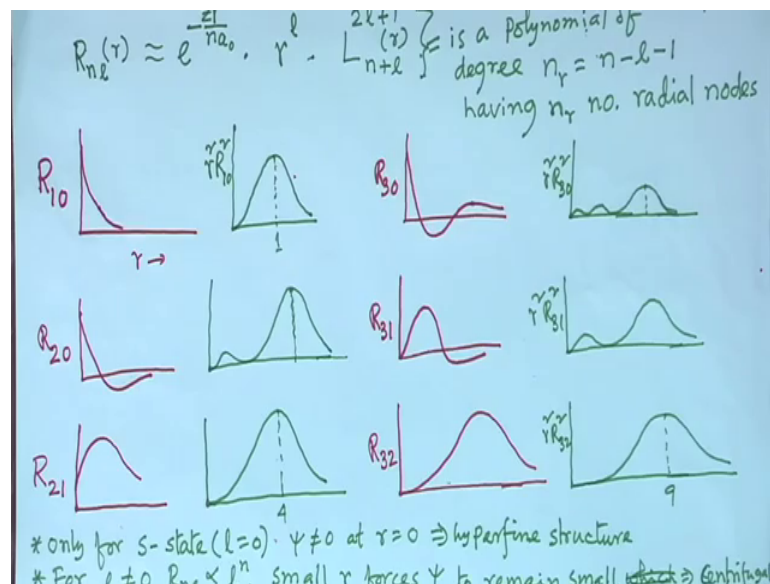 R_{nl}(r) ≈ e^{-\frac{zr}{na_0}} . r^l . L_{n+l}^{2l+1}(r) } = is a polynomial of
degree n_r = n-l-1
having n_r no. radial nodes
R_{10}
r→
r̃R̃_{10}
1
R_{30}
r̃R̃_{30}
R_{20}
R_{31}
r̃R̃_{31}
R_{21}
4
R_{32}
r̃R̃_{32}
9
* only for s-state (l=0). Ψ≠0 at r=0 ⇒ hyperfine structure
* For l≠0 ∝ l^n small r forces Ψ to remain small ⇒